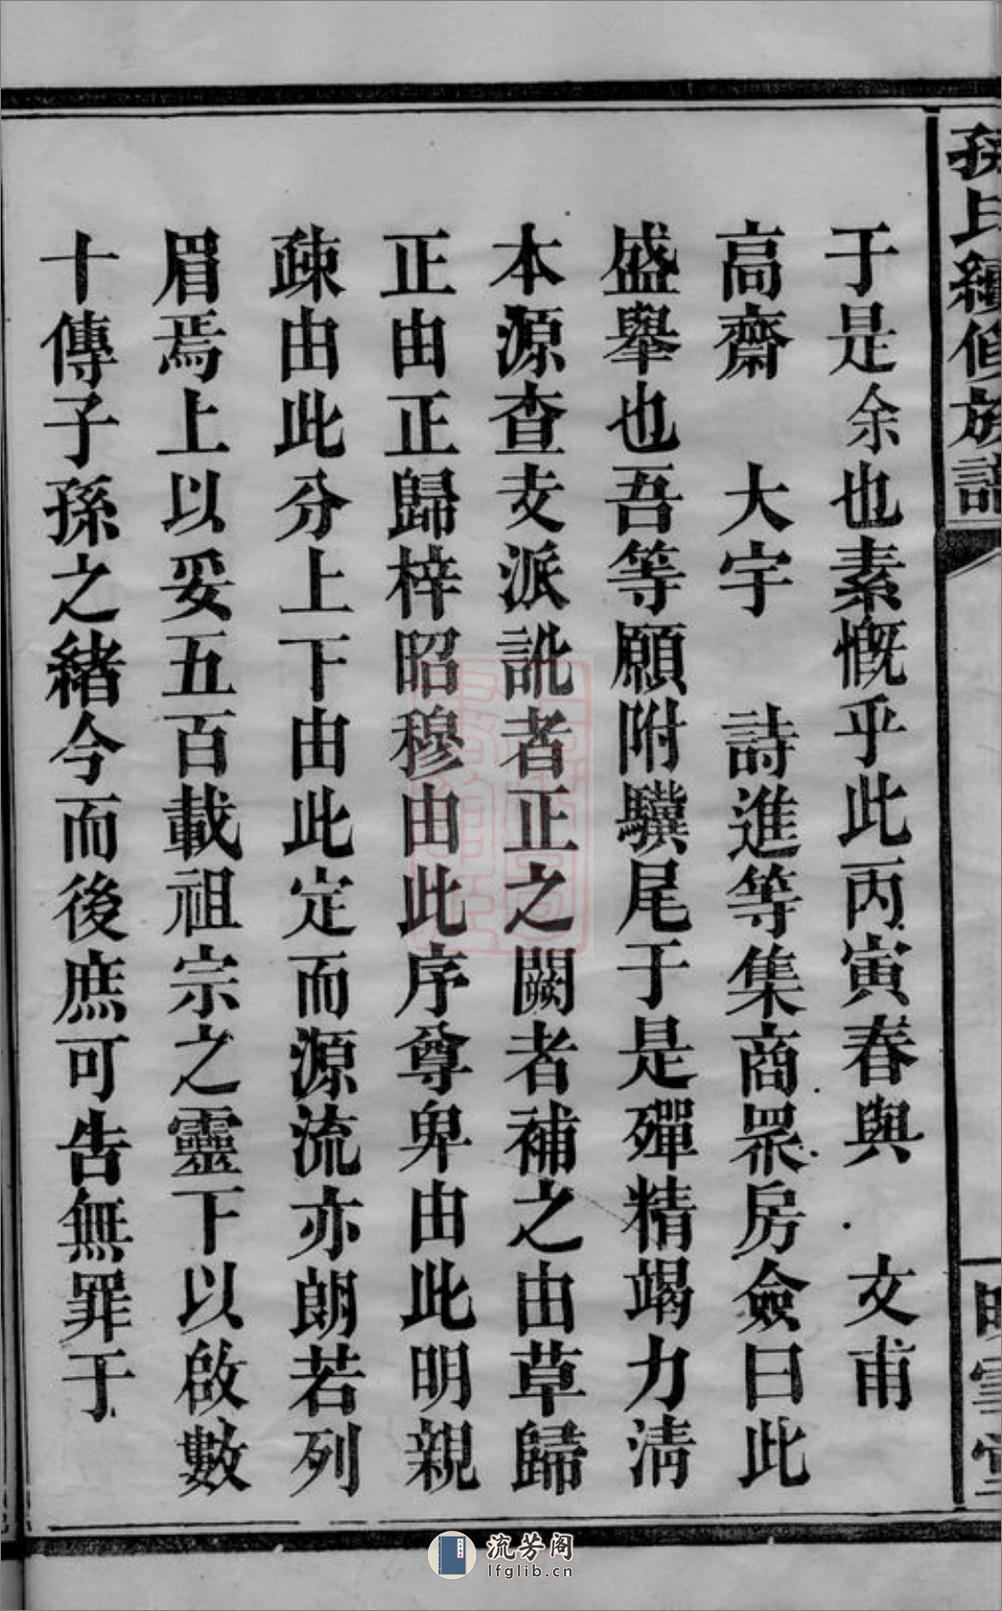 孫氏續修族譜
映雪堂
于是余也素慨乎此丙寅春與　文甫
高齋　大宇　詩進等集商眾房僉曰此
盛舉也吾等願附驥尾于是殫精竭力清
本源查支派訛者正之闕者補之由草歸
正由正歸梓昭穆由此序尊卑由此明親
疎由此分上下由此定而源流亦朗若列
眉焉上以妥五百載祖宗之靈下以啟數
十傳子孫之緒今而後庶可告無罪于
流芳阁
lfglib.cn